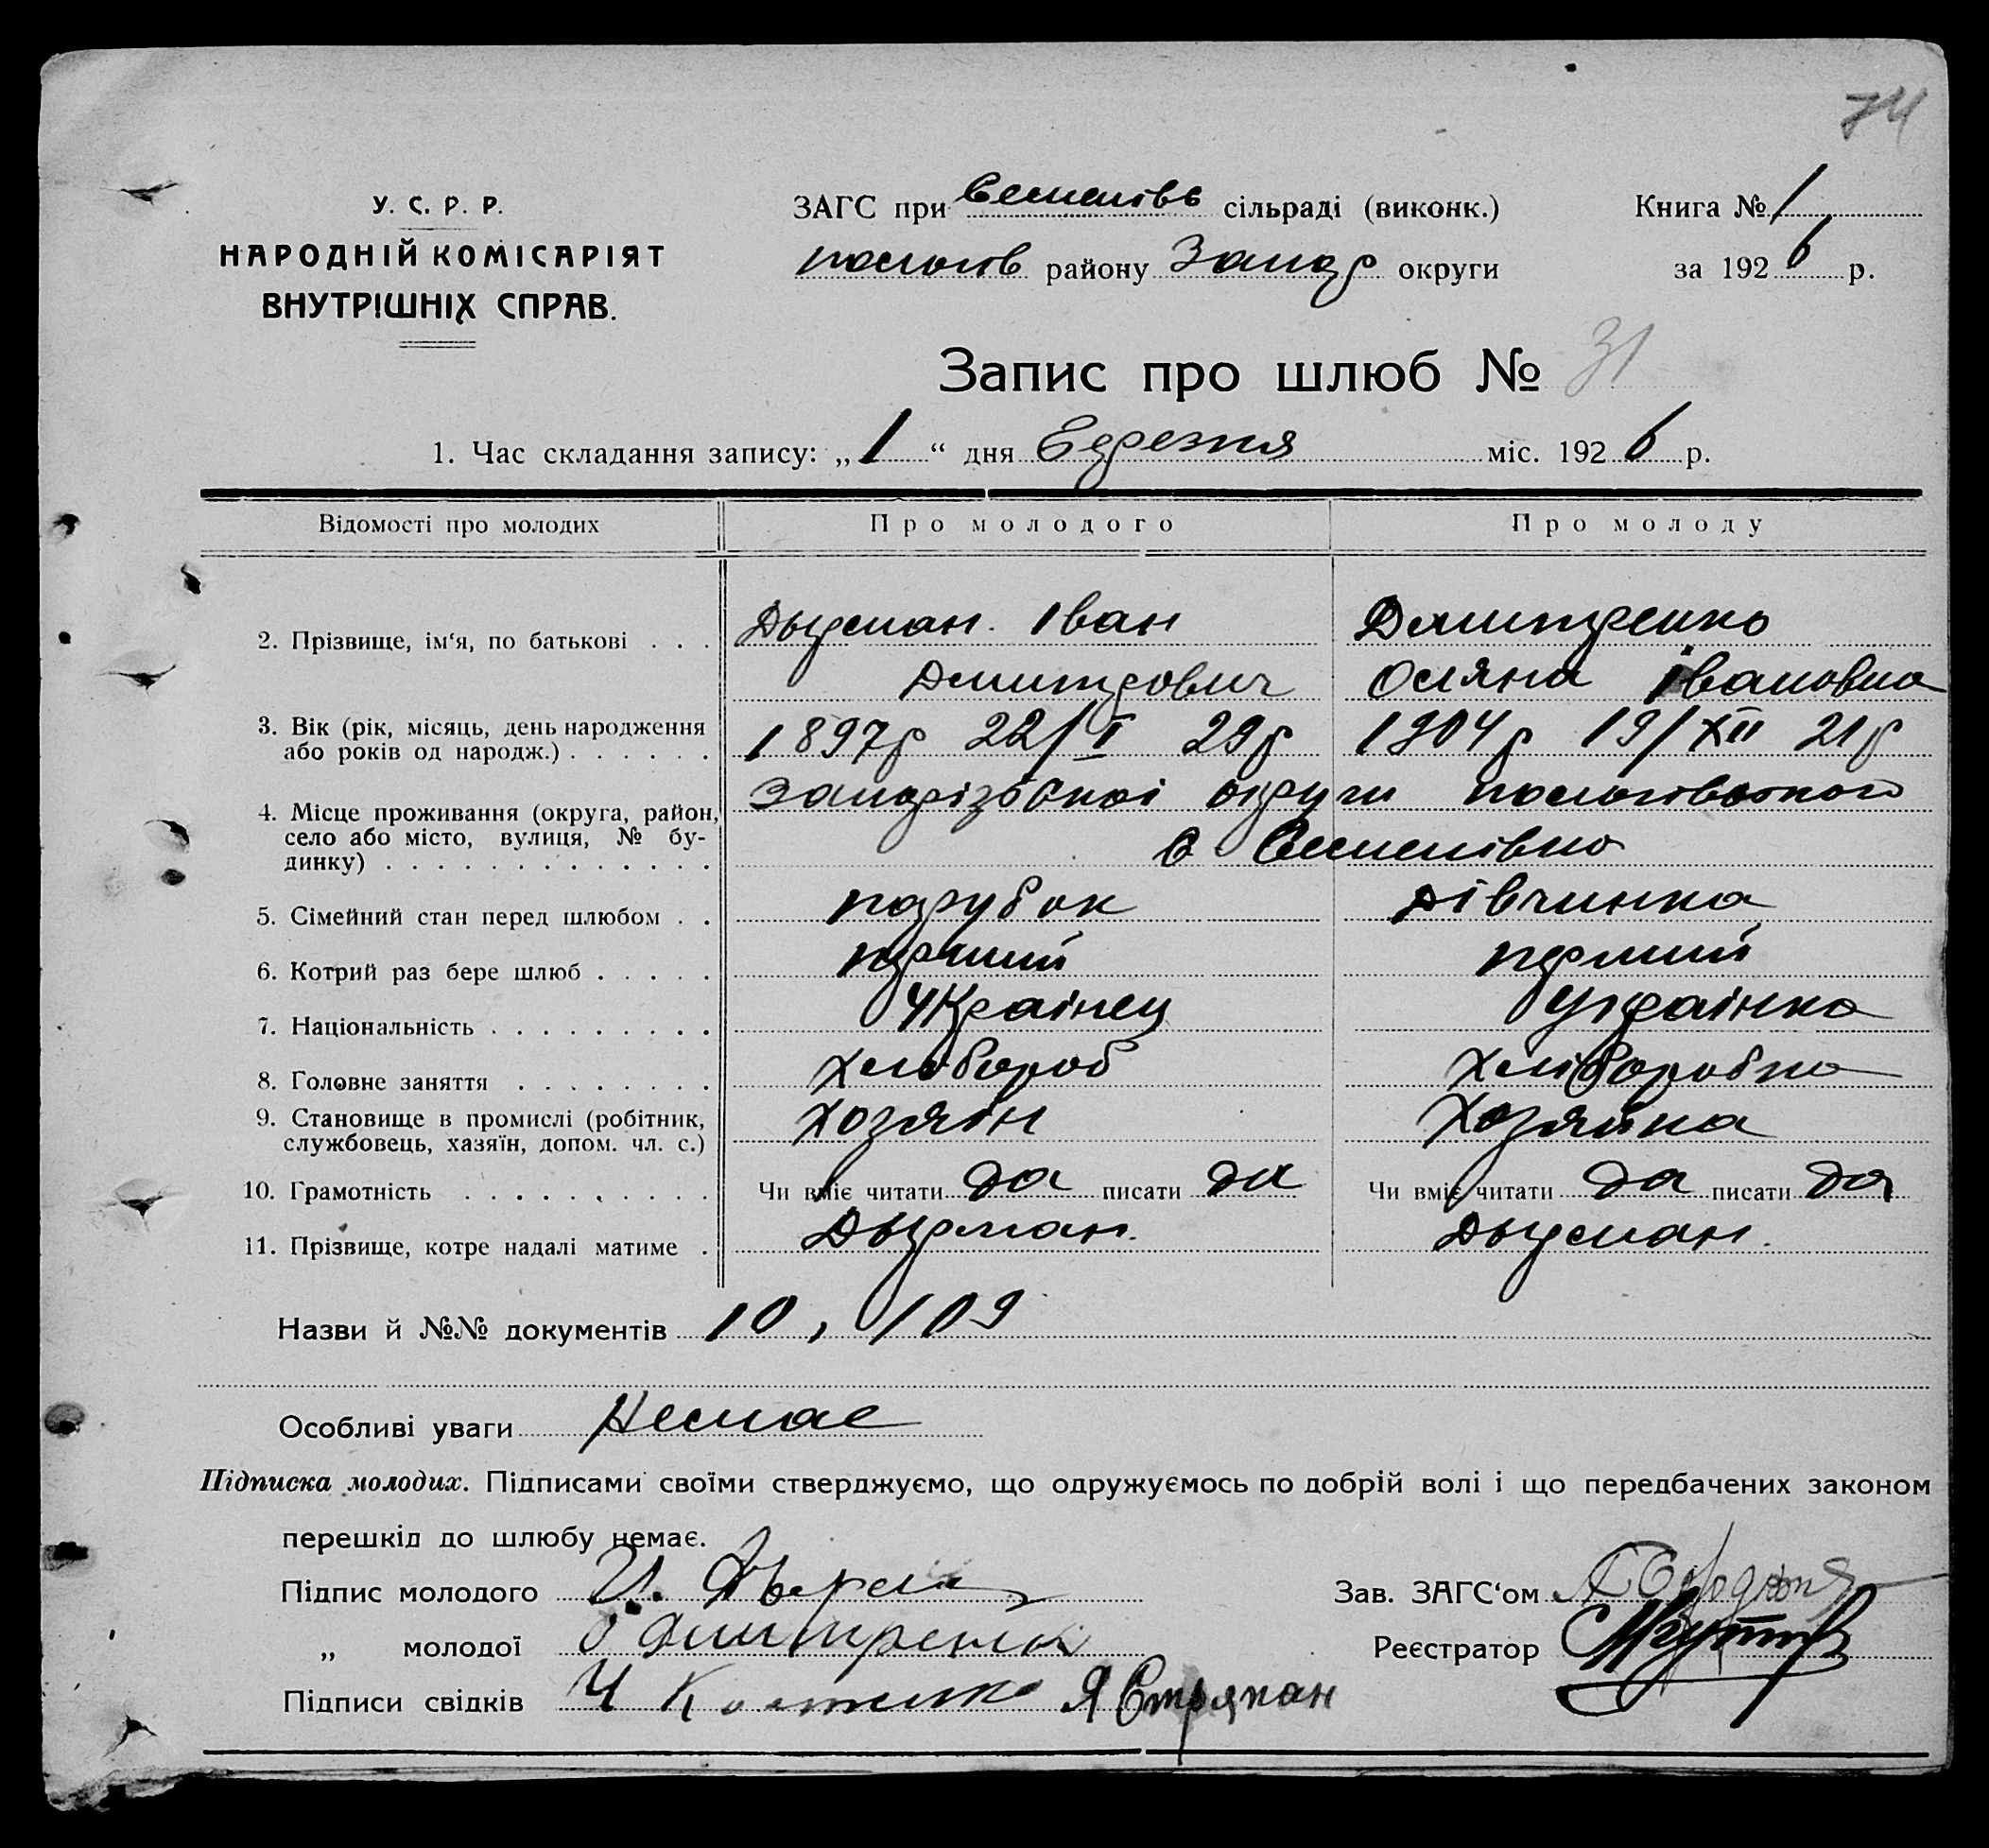 74
У. С. Р. Р.
НАРОДНІЙ КОМІСАРІЯТ
ВНУТРІШНІХ СПРАВ.
ЗАГС при Семенівс сільраді (виконк.)
пологів району Запор округи
Книга № 1
за 1926 р.
Запис про шлюб № 31
1. Час складання запису: „1“ дня березня міс. 1926 р.
Відомості про молодих Про молодого Про молоду
2. Прізвище, ім‘я, по батькові . . . Дырман Іван Дмитренко
Дмитрович Оляна Івановна
3. Вік (рік, місяць, день народження
або років од народж.) . . . . . . 1897р 22/I 29р 1904р 19/XII 21р
4. Місце проживання (округа, район, Запорізської округи Пологовского
село або місто, вулиця, № бу-
динку) . . . . . . . . . . . . . с Семенівка
5. Сімейний стан перед шлюбом . . парубок дівчинка
6. Котрий раз бере шлюб . . . . . перший перший
7. Національність . . . . . . . . . Українец Українка
8. Головне заняття . . . . . . . . Хлібороб Хліборобка
9. Становище в промислі (робітник,
службовець, хазяїн, допом. чл. с.) Хозяін Хозяйка
10. Грамотність . . . . . . . . . . Чи вміє читати да писати да Чи вміє читати да писати да
11. Прізвище, котре надалі матиме . Дырман. Дырман.
Назви й №№ документів 10, 109
Особливі уваги Немае
Підписка молодих. Підписами своїми стверджуємо, що одружуємось по добрій волі і що передбачених законом
перешкід до шлюбу немає.
Підпис молодого И. Дырман Зав. ЗАГС‘ом
„ молодої О Дмитренко Реєстратор
Підписи свідків Я Стряпан